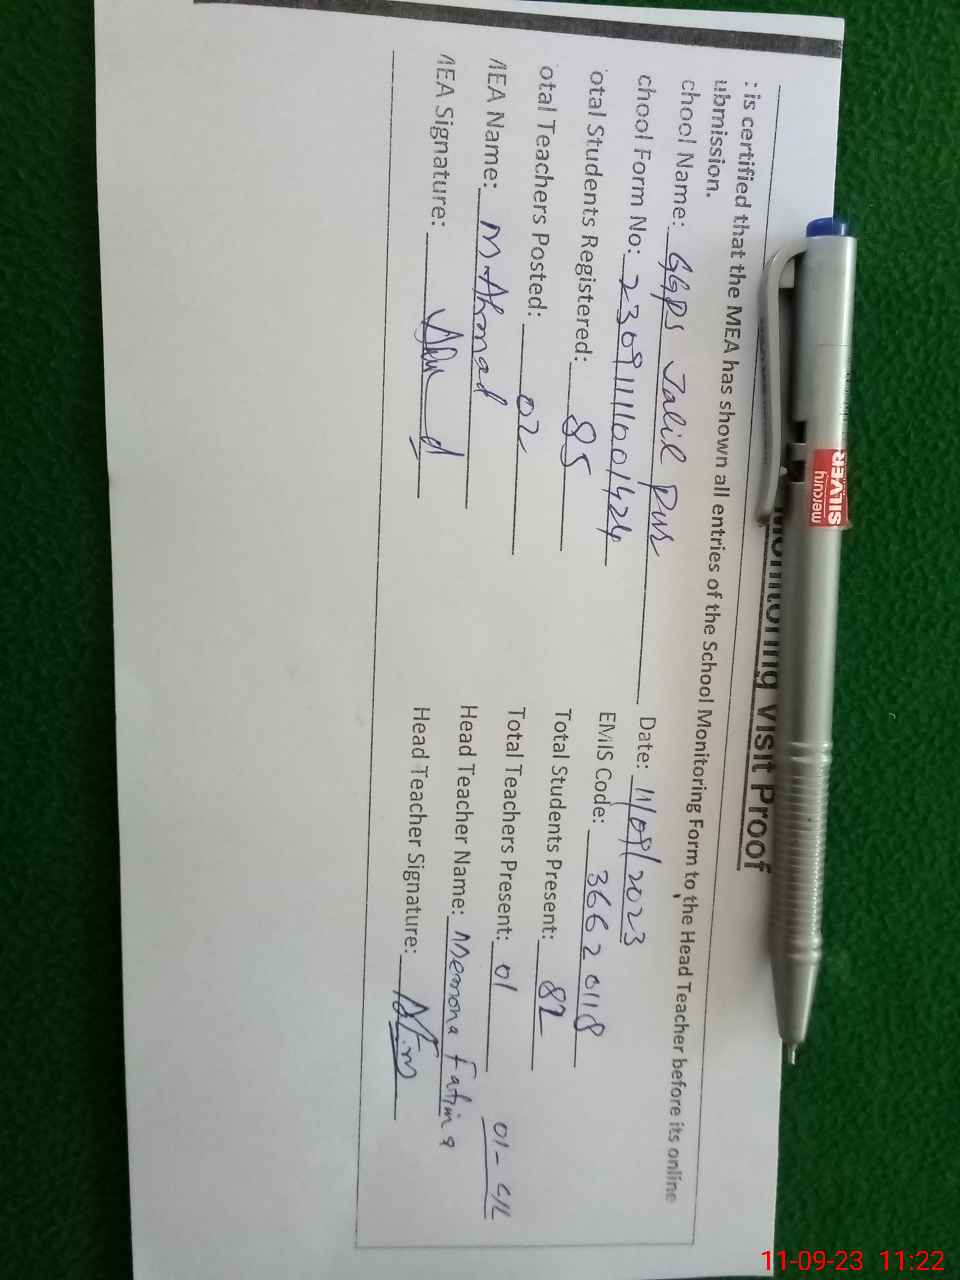 Monitoring Visit Proof
: is certified that the MEA has shown all entries of the School Monitoring Form to the Head Teacher before its online
ubmission.
chool Name: GGPS Jalil Pur Date: 11/09/2023
chool Form No: 2309111001424 EMIS Code: 36620118
otal Students Registered: 85 Total Students Present: 82
otal Teachers Posted: 02 Total Teachers Present: 01 01-
MEA Name: M-Ahmad Head Teacher Name: Memona Fatima
MEA Signature: Head Teacher Signature:
mercury
SILVER
11-09-23 11:22